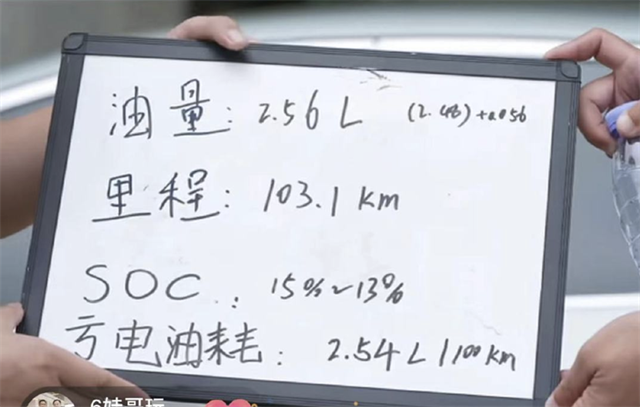 油量: 2.56 L (2.48)+0.056
里程: 103.1 km
SOC: 15%~13%
亏电油耗: 2.54L/100km
6妹哥玩